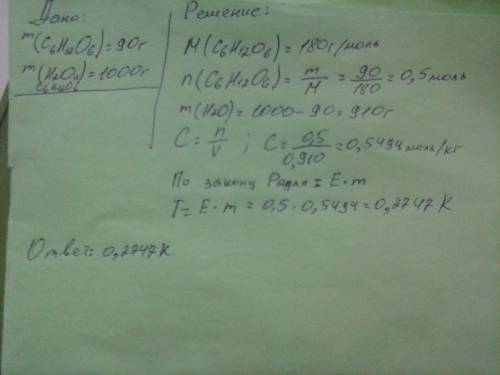 Дано:
m(C6H12O6)=90г
m(H2O)=1000г
C6H12O6
Решение:
M(C6H12O6)=180г/моль
n(C6H12O6)= m/M = 90/180 = 0,5моль
m(H2O)=1000-90=910г
C= n/V ; C= 0,5/0,910 =0,5494моль/кг
По закону Рауля = E·m
T= E·m = 0,5·0,5494=0,2747K
Ответ: 0,2747K